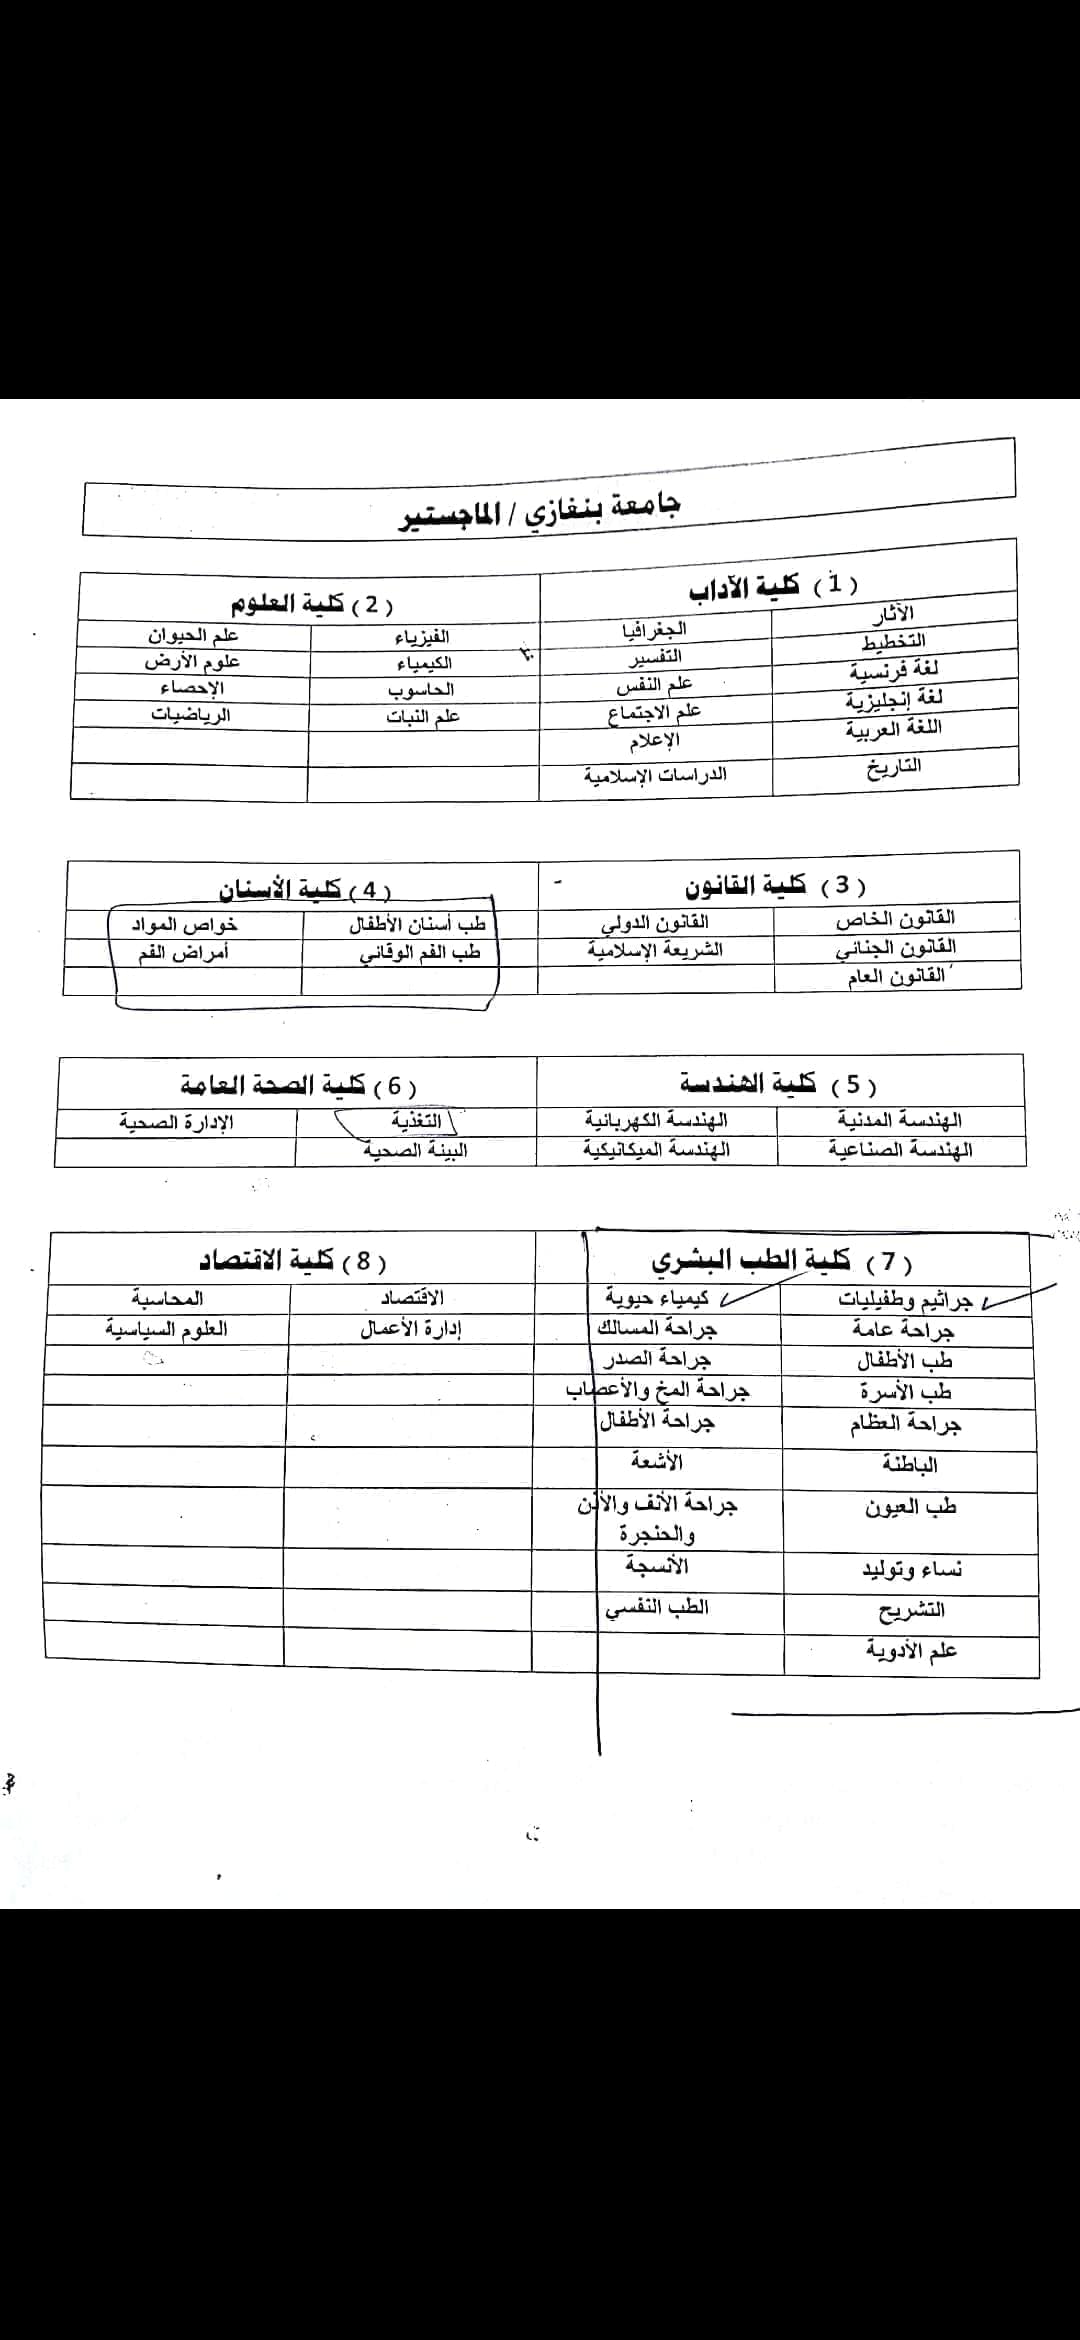 جامعة بنغازي / الماجستير
( 1 ) كلية الآداب
( 2 ) كلية العلوم
الآثار الجغرافيا الفيزياء علم الحيوان
التخطيط التفسير الكيمياء علوم الأرض
لغة فرنسية علم النفس الحاسوب الإحصاء
لغة إنجليزية علم الاجتماع علم النبات الرياضيات
اللغة العربية الإعلام
التاريخ الدراسات الإسلامية
( 3 ) كلية القانون
( 4 ) كلية الأسنان
القانون الخاص القانون الدولي طب أسنان الأطفال خواص المواد
القانون الجنائي الشريعة الإسلامية طب الفم الوقائي أمراض الفم
القانون العام
( 5 ) كلية الهندسة
( 6 ) كلية الصحة العامة
الهندسة المدنية الهندسة الكهربائية التغذية الإدارة الصحية
الهندسة الصناعية الهندسة الميكانيكية البيئة الصحية
( 7 ) كلية الطب البشري
( 8 ) كلية الاقتصاد
جراثيم وطفيليات كيمياء حيوية الاقتصاد المحاسبة
جراحة عامة جراحة المسالك إدارة الأعمال العلوم السياسية
طب الأطفال جراحة الصدر
طب الأسرة جراحة المخ والأعصاب
جراحة العظام جراحة الأطفال
الباطنة الأشعة
طب العيون جراحة الأنف والأذن
والحنجرة
نساء وتوليد الأنسجة
التشريح الطب النفسي
علم الأدوية